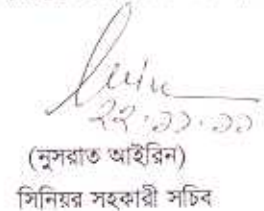 ২২.১১.১১
(নুসরাত আইরিন)
সিনিয়র সহকারী সচিব